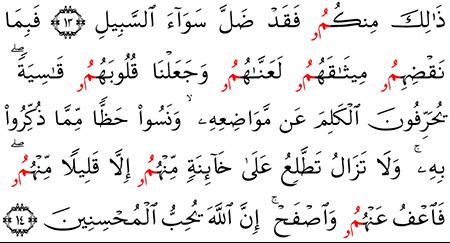 ذَٰلِكَ مِنكُمُۥ فَقَدْ ضَلَّ سَوَآءَ ٱلسَّبِيلِ ﴿١٣﴾ فَبِمَا
نَقْضِهِمُۥ مِيثَـٰقَهُمُۥ لَعَنَّـٰهُمُۥ وَجَعَلْنَا قُلُوبَهُمُۥ قَـٰسِيَةًۖ
يُحَرِّفُونَ ٱلْكَلِمَ عَن مَّوَاضِعِهِۦۙ وَنَسُوا۟ حَظًّا مِّمَّا ذُكِّرُوا۟
بِهِۦۚ وَلَا تَزَالُ تَطَّلِعُ عَلَىٰ خَآئِنَةٍ مِّنْهُمُۥ إِلَّا قَلِيلًا مِّنْهُمُۥۖ
فَٱعْفُ عَنْهُمُۥ وَٱصْفَحْۚ إِنَّ ٱللَّهَ يُحِبُّ ٱلْمُحْسِنِينَ ﴿١٤﴾